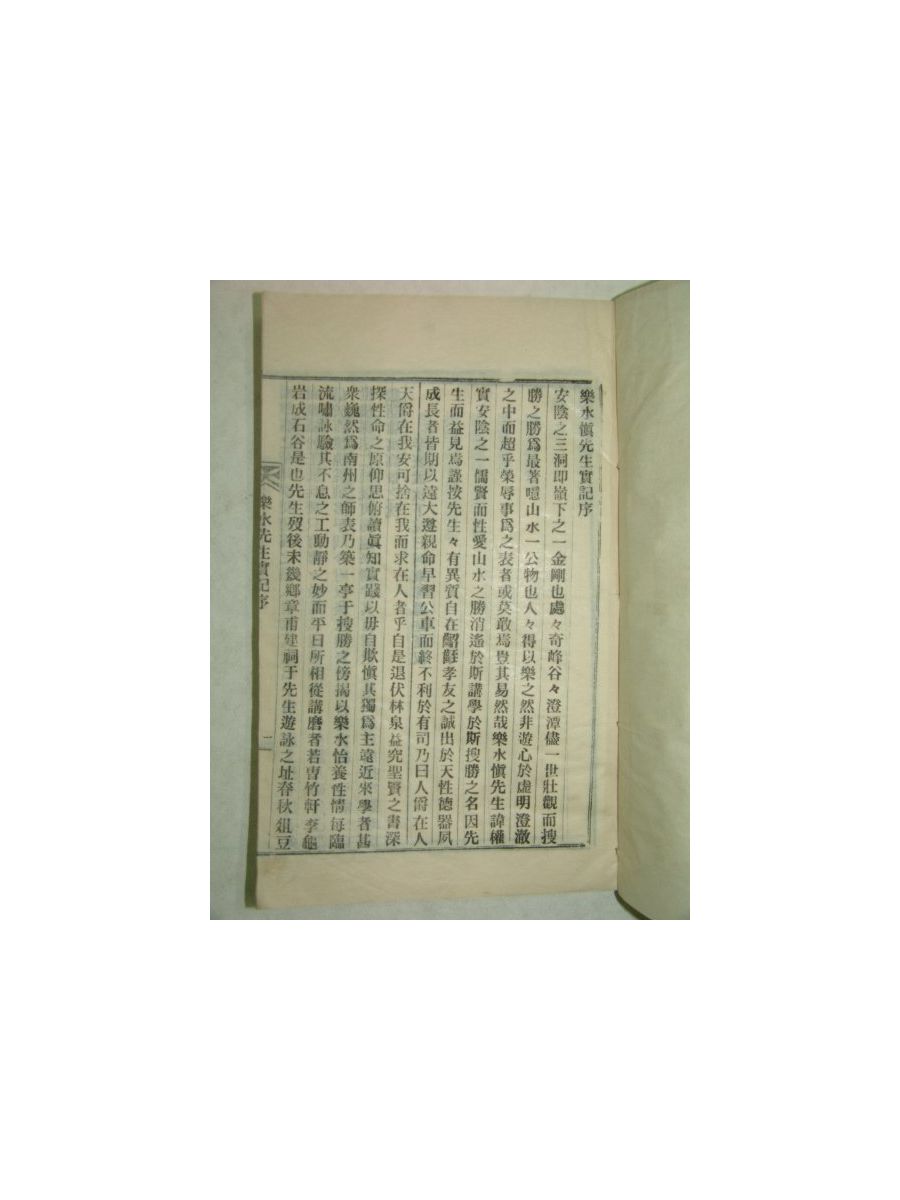 樂水愼先生實記序
安陰之三洞即嶺下之一金剛也處々奇峰谷々澄潭儘一世壯觀而搜
勝之勝爲最著噫山水一公物也人々得以樂之然非遊心於虛明澄澈
之中而超乎榮辱事爲之表者或莫敢焉豈其易然哉樂水愼先生諱權
實安陰之一儒賢而性愛山水之勝消遙於斯講學於斯搜勝之名因先
生而益見焉謹按先生々有異質自在齠齔孝友之誠出於天性德器夙
成長者皆期以遠大遵親命早習公車而終不利於有司乃曰人爵在人
天爵在我安可捨在我而求在人者乎自是退伏林泉益究聖賢之書深
探性命之原仰思俯讀眞知實踐以毋自欺愼其獨爲主遠近來學者甚
衆巍然爲南州之師表乃築一亭于搜勝之傍揭以樂水怡養性情每臨
流嘯詠驗其不息之工動靜之妙而平日所相從講磨者若曺竹軒李龜
岩成石谷是也先生歿後未幾鄕章甫建祠于先生遊詠之址春秋俎豆
樂水先生實記序
一